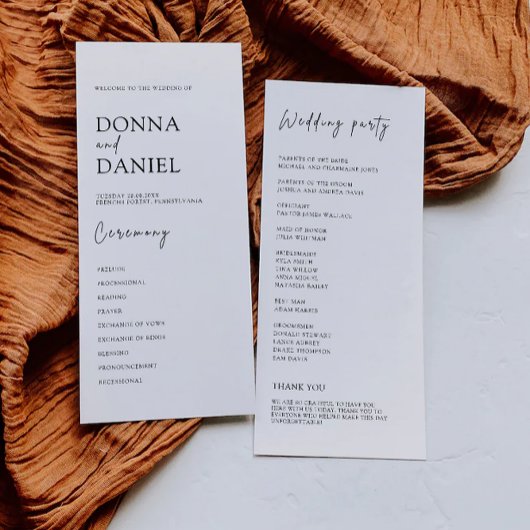 WELCOME TO THE WEDDING OF
DONNA
and
DANIEL
TUESDAY 20.09.20XX
FRENCHS FOREST, PENNSYLVANIA
Ceremony
PRELUDE
PROCESSIONAL
READING
PRAYER
EXCHANGE OF VOWS
EXCHANGE OF RINGS
BLESSING
PRONOUNCEMENT
RECESSIONAL
Wedding party
PARENTS OF THE BRIDE
MICHAEL AND CHARMAINE JONES
PARENTS OF THE GROOM
JOSHUA AND ANDREA DAVIS
OFFICIANT
PASTOR JAMES WALLACE
MAID OF HONOR
JULIA WHITMAN
BRIDESMAIDS
KYLA SMITH
TINA WILLOW
ANNA MIGUEL
NATASHA BAILEY
BEST MAN
ADAM HARRIS
GROOMSMEN
DONALD STEWART
LANCE AUBREY
DRAKE THOMPSON
SAM DAVIS
THANK YOU
WE ARE SO GRATEFUL TO HAVE YOU
HERE WITH US TODAY. THANK YOU TO
EVERYONE WHO HELPED MAKE THIS DAY
UNFORGETTABLE!